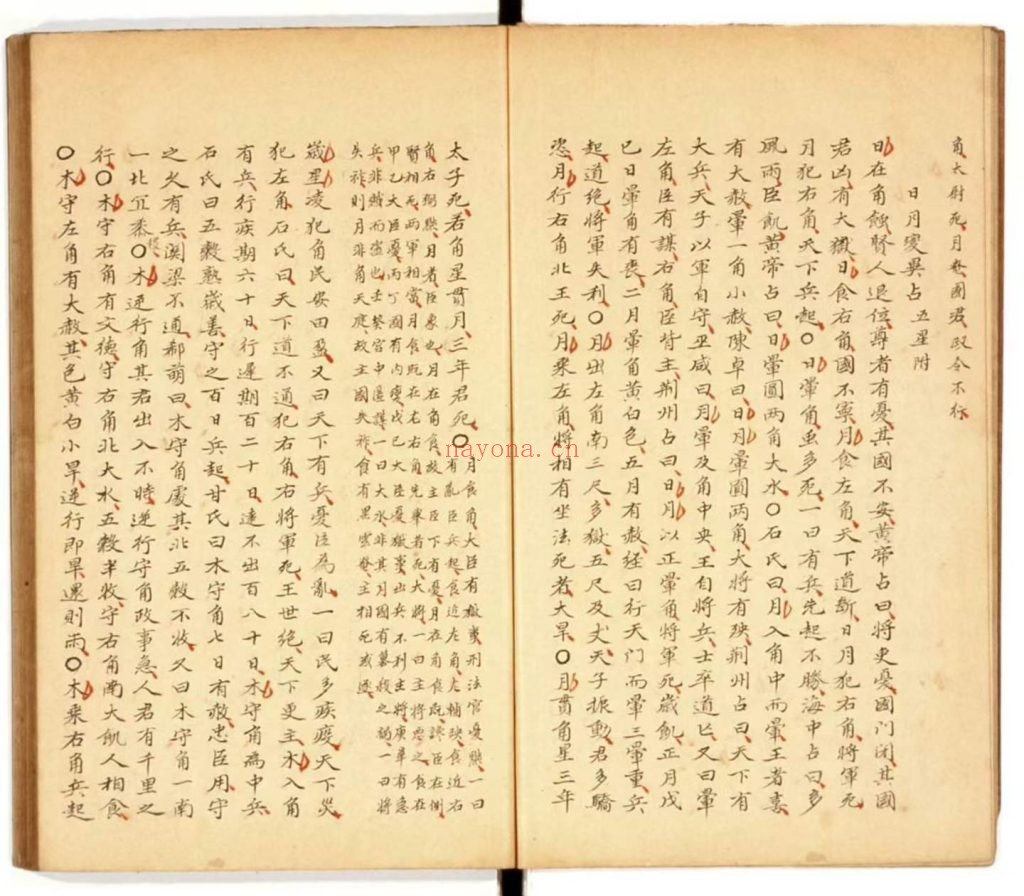 角大尉死月無國君政令不行
日月變異占五星附
日在角蝕賢人退位尊者有憂其國不安黃帝占曰將吏憂國門閉其國
君凶有大獄日食右角國不寧月食左角天下道斷日月犯右角將軍死
月犯右角天下兵起〇日暈角虫多死一曰有兵先起不勝海中占曰多
風雨臣飢黃帝占曰日暈圓兩角大水〇石氏曰月入角中而暈王者喜
有大赦暈一角小赦陳卓曰日月暈圓兩角大將有殃荆州占曰天下有
大兵天子以軍自守巫咸曰月暈及角中央王自將兵士卒道亡又曰暈
左角臣有謀右角臣恃主荆州占曰日月以正暈角將軍死歲飢正月戊
巳日暈角有喪二月暈角黃白色五月有赦經曰行天门而暈三暈重兵
起道絕將軍失利〇月出左角南三尺多獄五尺及丈天子振動君多驕
恣月行右角北王死月乘左角將相有坐法死者大旱〇月貫角星三年
太子死若角星貫月三年君死〇
月食角大臣有獄事刑法官憂黜一曰
有亂臣兵起食近左角左輔殃食近右
角右弼黜月者臣象也月在角食故主臣下有憂月在角食既讒臣在側
賢相死兩軍相當月食既在左右角先舉者死大將一曰主將惡之食在
甲乙大臣憂丙丁國有內變戊巳大臣憂獄橐出兵不利主將庚辛有急
兵非賊而盜也壬癸宮中匿謀一曰大水非其月國有暴殺之禍一曰將
失祚則月非角天庭政主國失祚食有黑雲叢主相死或逐
歲星凌犯角民安田盈又曰天下有兵憂臣為亂一曰民多疾疫天下災
犯左角石氏曰天下道不通犯右角右將軍死王世絕天下更主水入角
有兵行疾期六十日行遲期百二十日遠不出百八十日木守角為中兵
石氏曰五穀熟歲善守之百日兵起甘氏曰木守角七日有敬忠臣用守
之久有兵關梁不通郗萌曰木守角處其北五穀不收久曰木守角一南
一北宜黍〇木逆行角其君出入不時逆行守角政事急人君有千里之
行〇木守右角有文德守右角北大水五穀半收守右角南大飢人相食
〇木守左角有大赦其色黃白小旱逆行即旱還則雨〇木乘右角兵起
nayona.cn